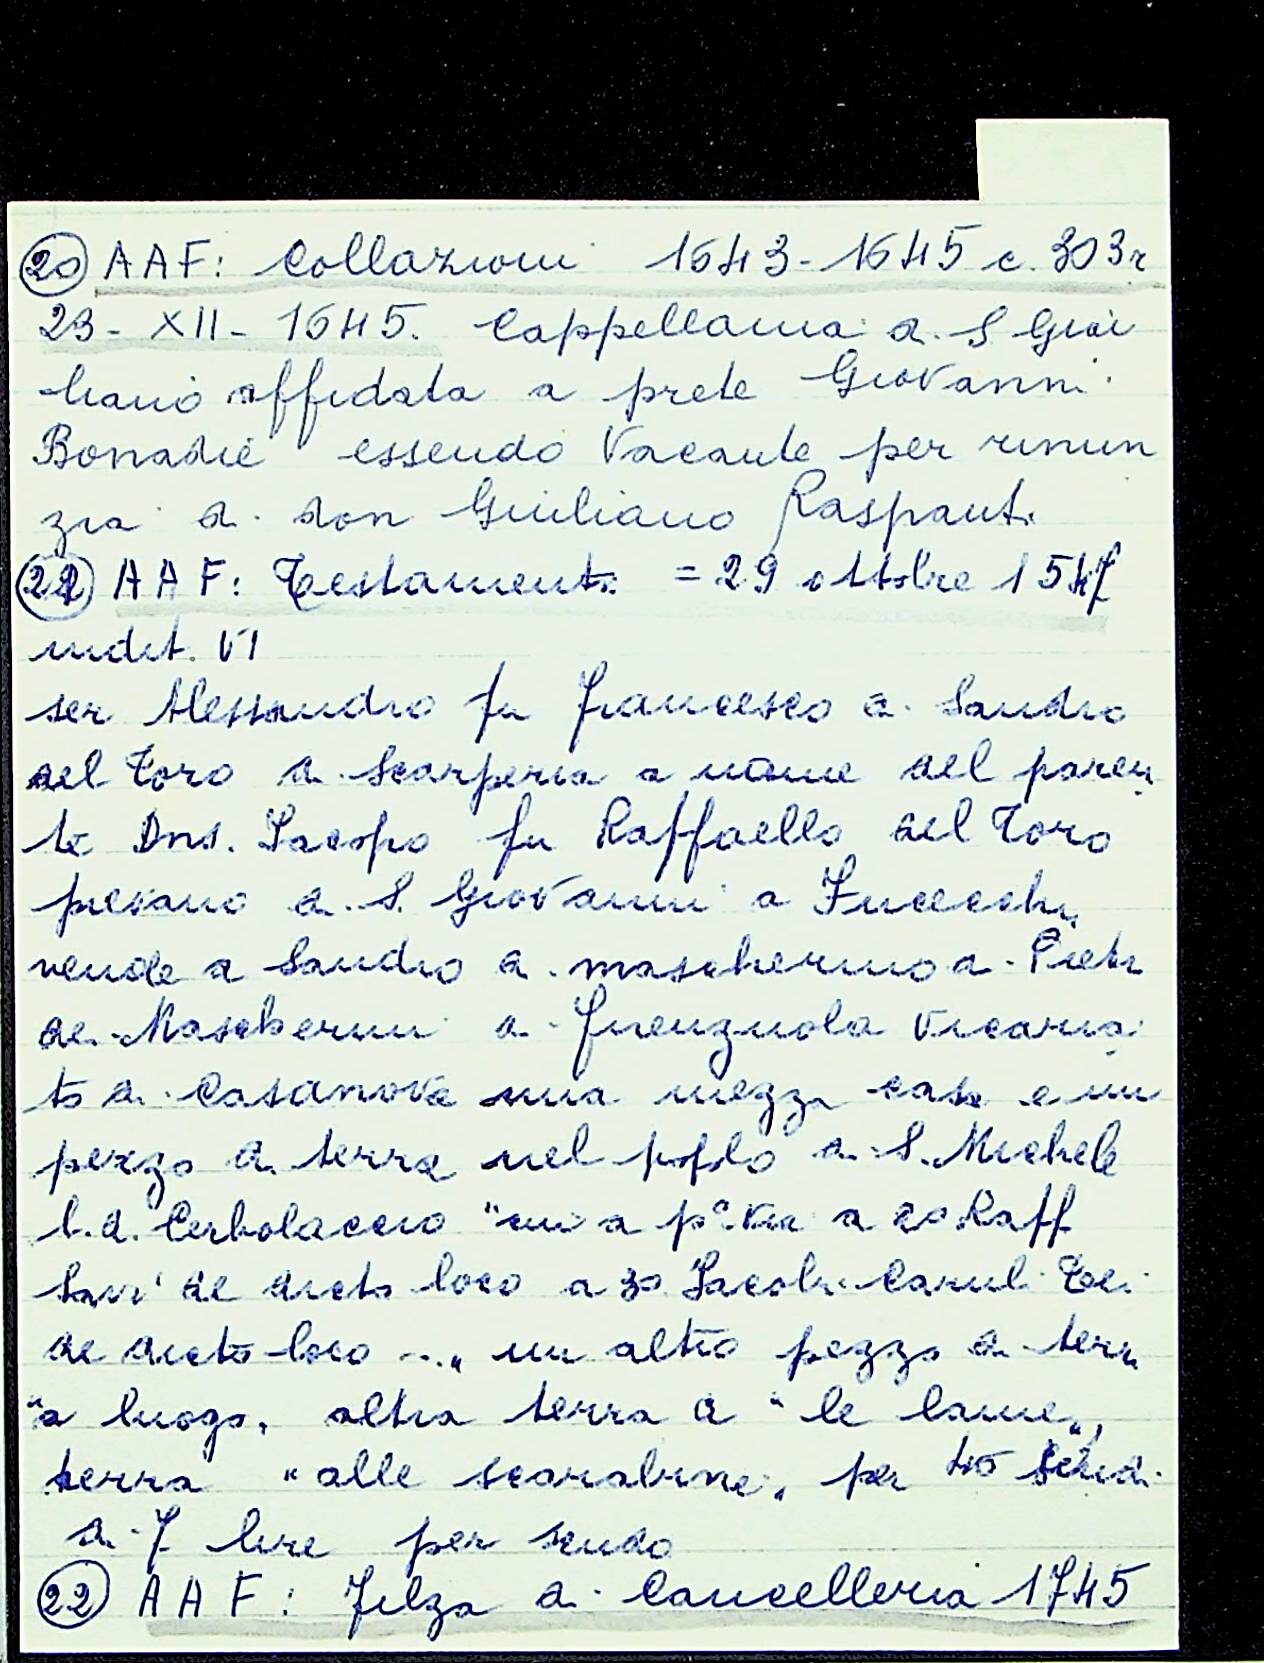 20 AAF: Collazioni 1643-1645 c. 303r
23-XII-1645. Cappellania di S Giu
liano affidata a prete Giovanni
Bonadie essendo vacante per rinun
zia di don Giuliano Raspanti
21 AAF: Testamenti = 29 ottobre 1547
indit. VI
ser Alessandro fu Francesco di Sandro
del Toro di Scarperia a nome del paren
te Dns. Iacopo fu Raffaello del Toro
pievano di S. Giovanni a Fucecchi
vende a Sandro di mascherino di Pietr
de Mascherini di Firenzuola Vicaria
to di Casanova una mezza casa e un
pezzo di terra nel poplo di S. Michele
l.d. Cerbolaccio "cui a p° via a 2° Raff
de dicto loco a 3° Iacobi
de dicto loco ..." un altro pezzo di terra
"a luogo, altra terra a "le lame",
terra "alle scarabine" per 40 scudi
di 7 lire per scudo
22 AAF: Filza di Cancelleria 1745